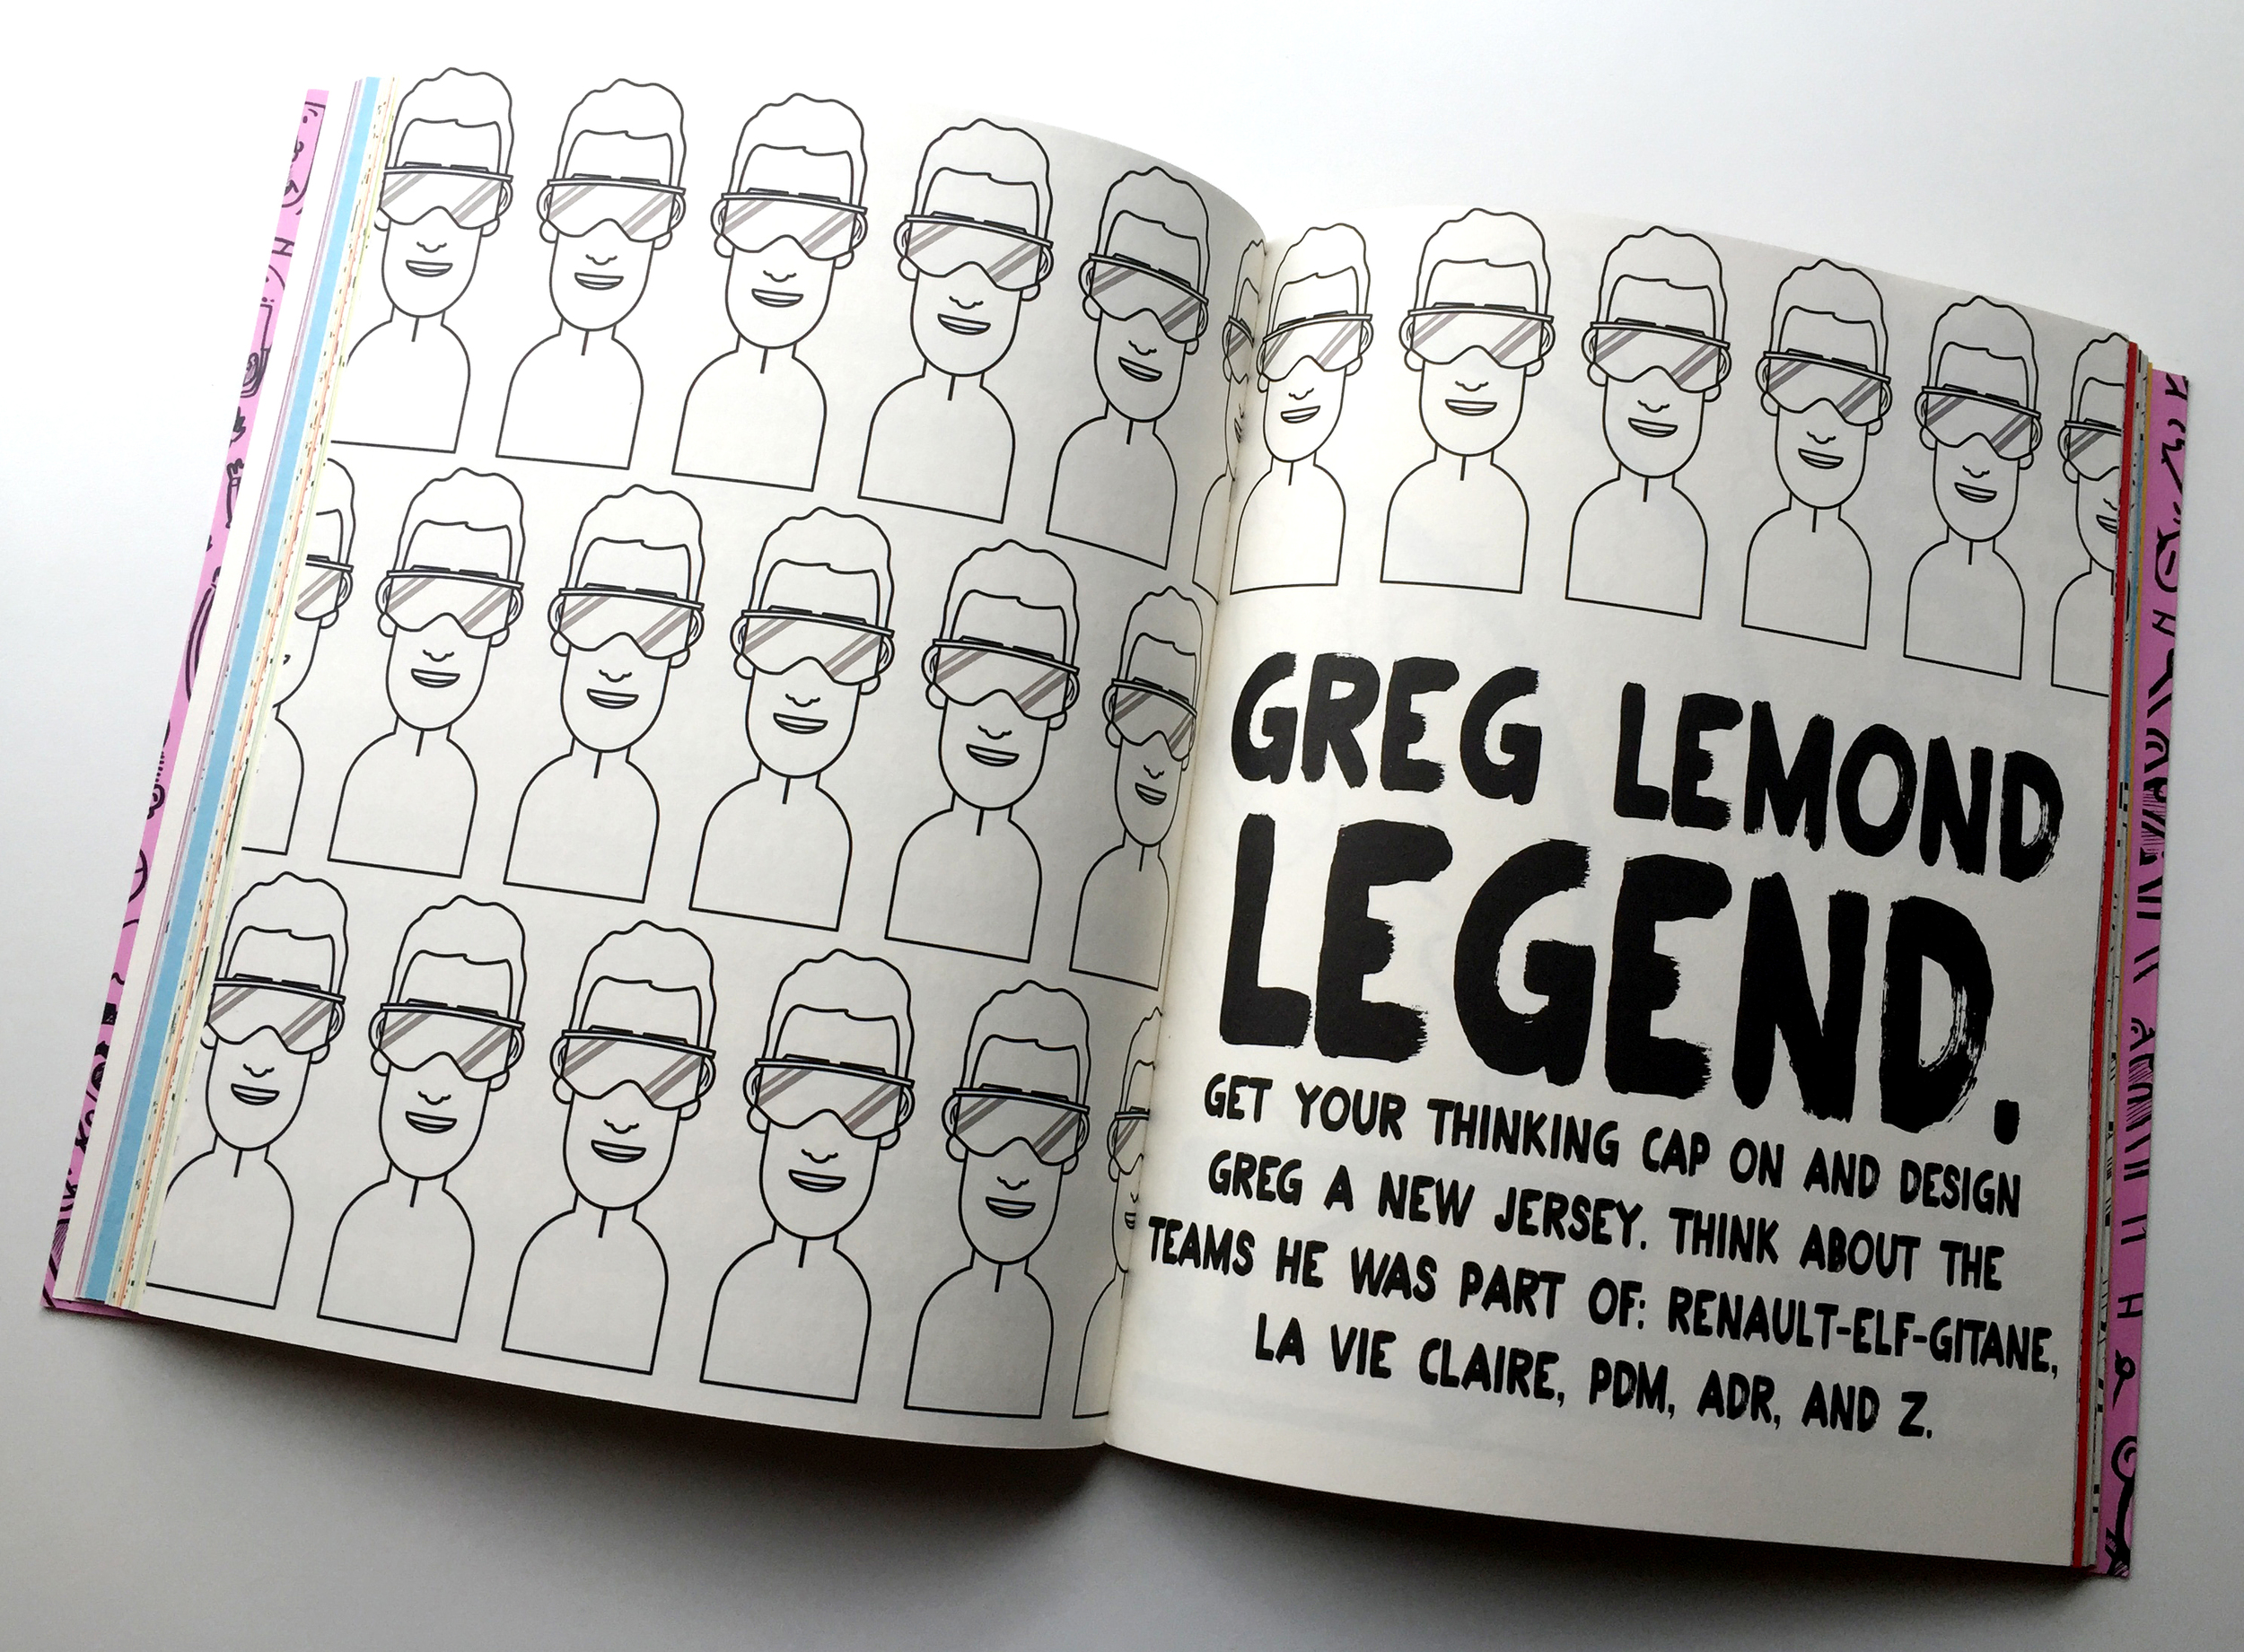 GREG LEMOND
LEGEND.
GET YOUR THINKING CAP ON AND DESIGN
GREG A NEW JERSEY. THINK ABOUT THE
TEAMS HE WAS PART OF: RENAULT-ELF-GITANE,
LA VIE CLAIRE, PDM, ADR, AND Z.